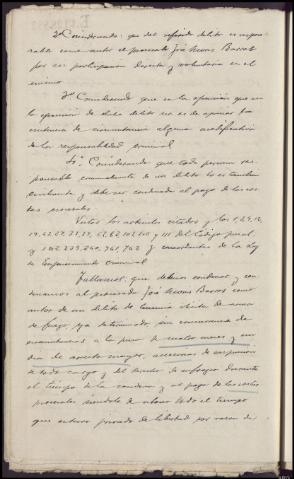 2º Considerando: que del referido delito es respon-
sable como autor el procesado José Burros Borras
por su participacion directa y voluntaria en el
mismo.
3º Considerando que en la
ejecucion de dicho delito no es de apreciar la con-
currencia de circunstancia alguna modificativa
de la responsabilidad criminal.
4º. Considerando que toda persona res-
ponsable criminalmente de un delito lo es tambien
civilmente y debe ser condenada al pago de las cos-
tas procesales.
Vistos los articulos citados y los 1,
y 111 del Codigo penal
y 142, 741, 742 y concordantes de la Ley
de Enjuiciamiento Criminal
Fallamos, que debemos condenar y con-
denamos al procesado José Borras como
autor de un delito de tenencia ilicita de arma
de fuego, ya determinado, sin concurrencia de
circunstancias a la pena de cuatro meses y un
dia de arresto mayor, accesorias de suspension
de todo cargo y del derecho de sufragio durante
el tiempo de la condena y al pago de las costas
procesales siendole de abono todo el tiempo
que estuvo privado de libertad por razon de